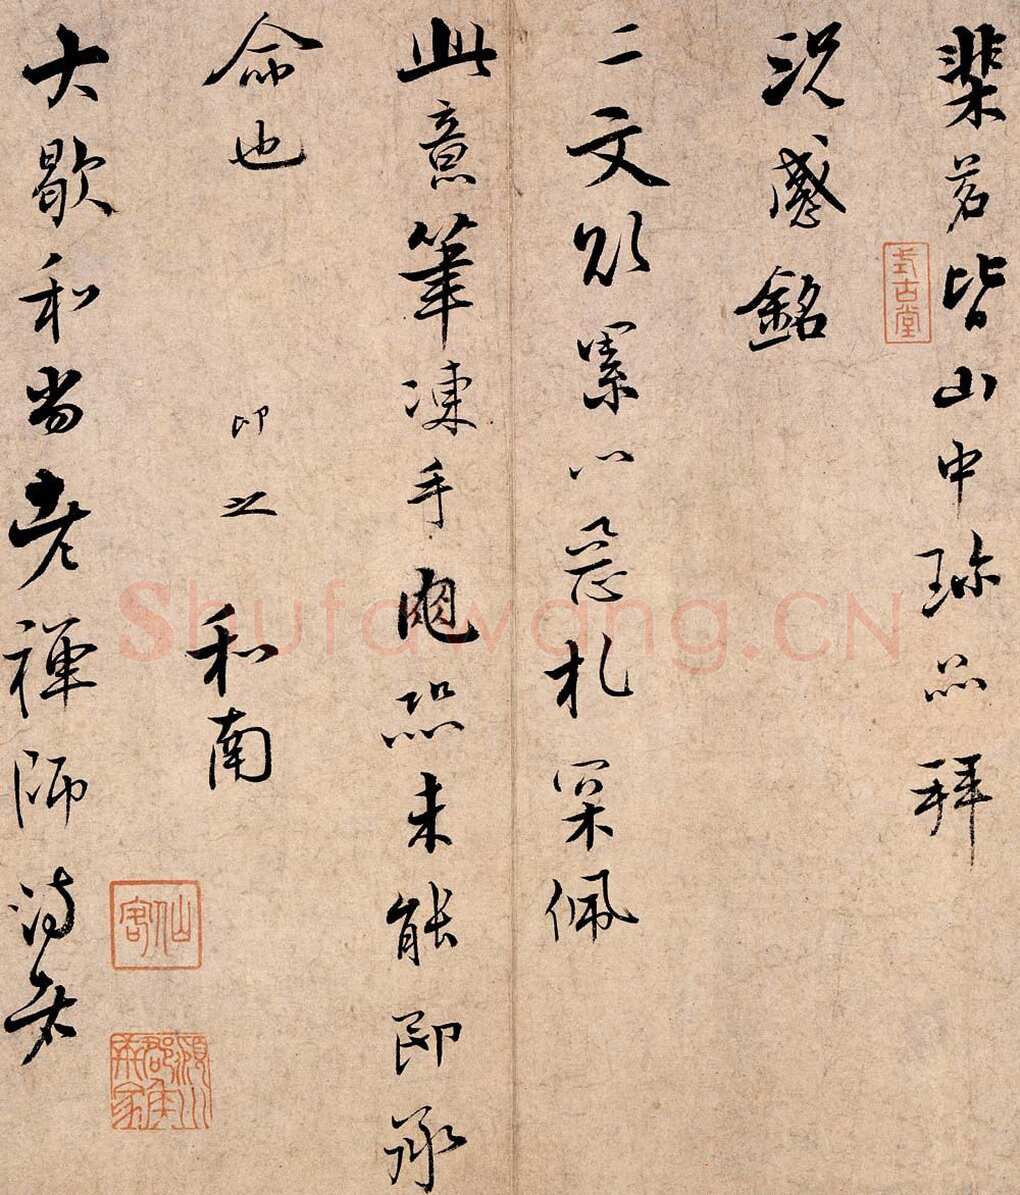 棐茗皆山中珎品拜
況感銘
二文欲累以惡札罙佩
此意筆凍手龜恐未能即承
命也 即之 和南
大歇和尚老禪師侍者
式古堂
仙客
Shufawang.CN